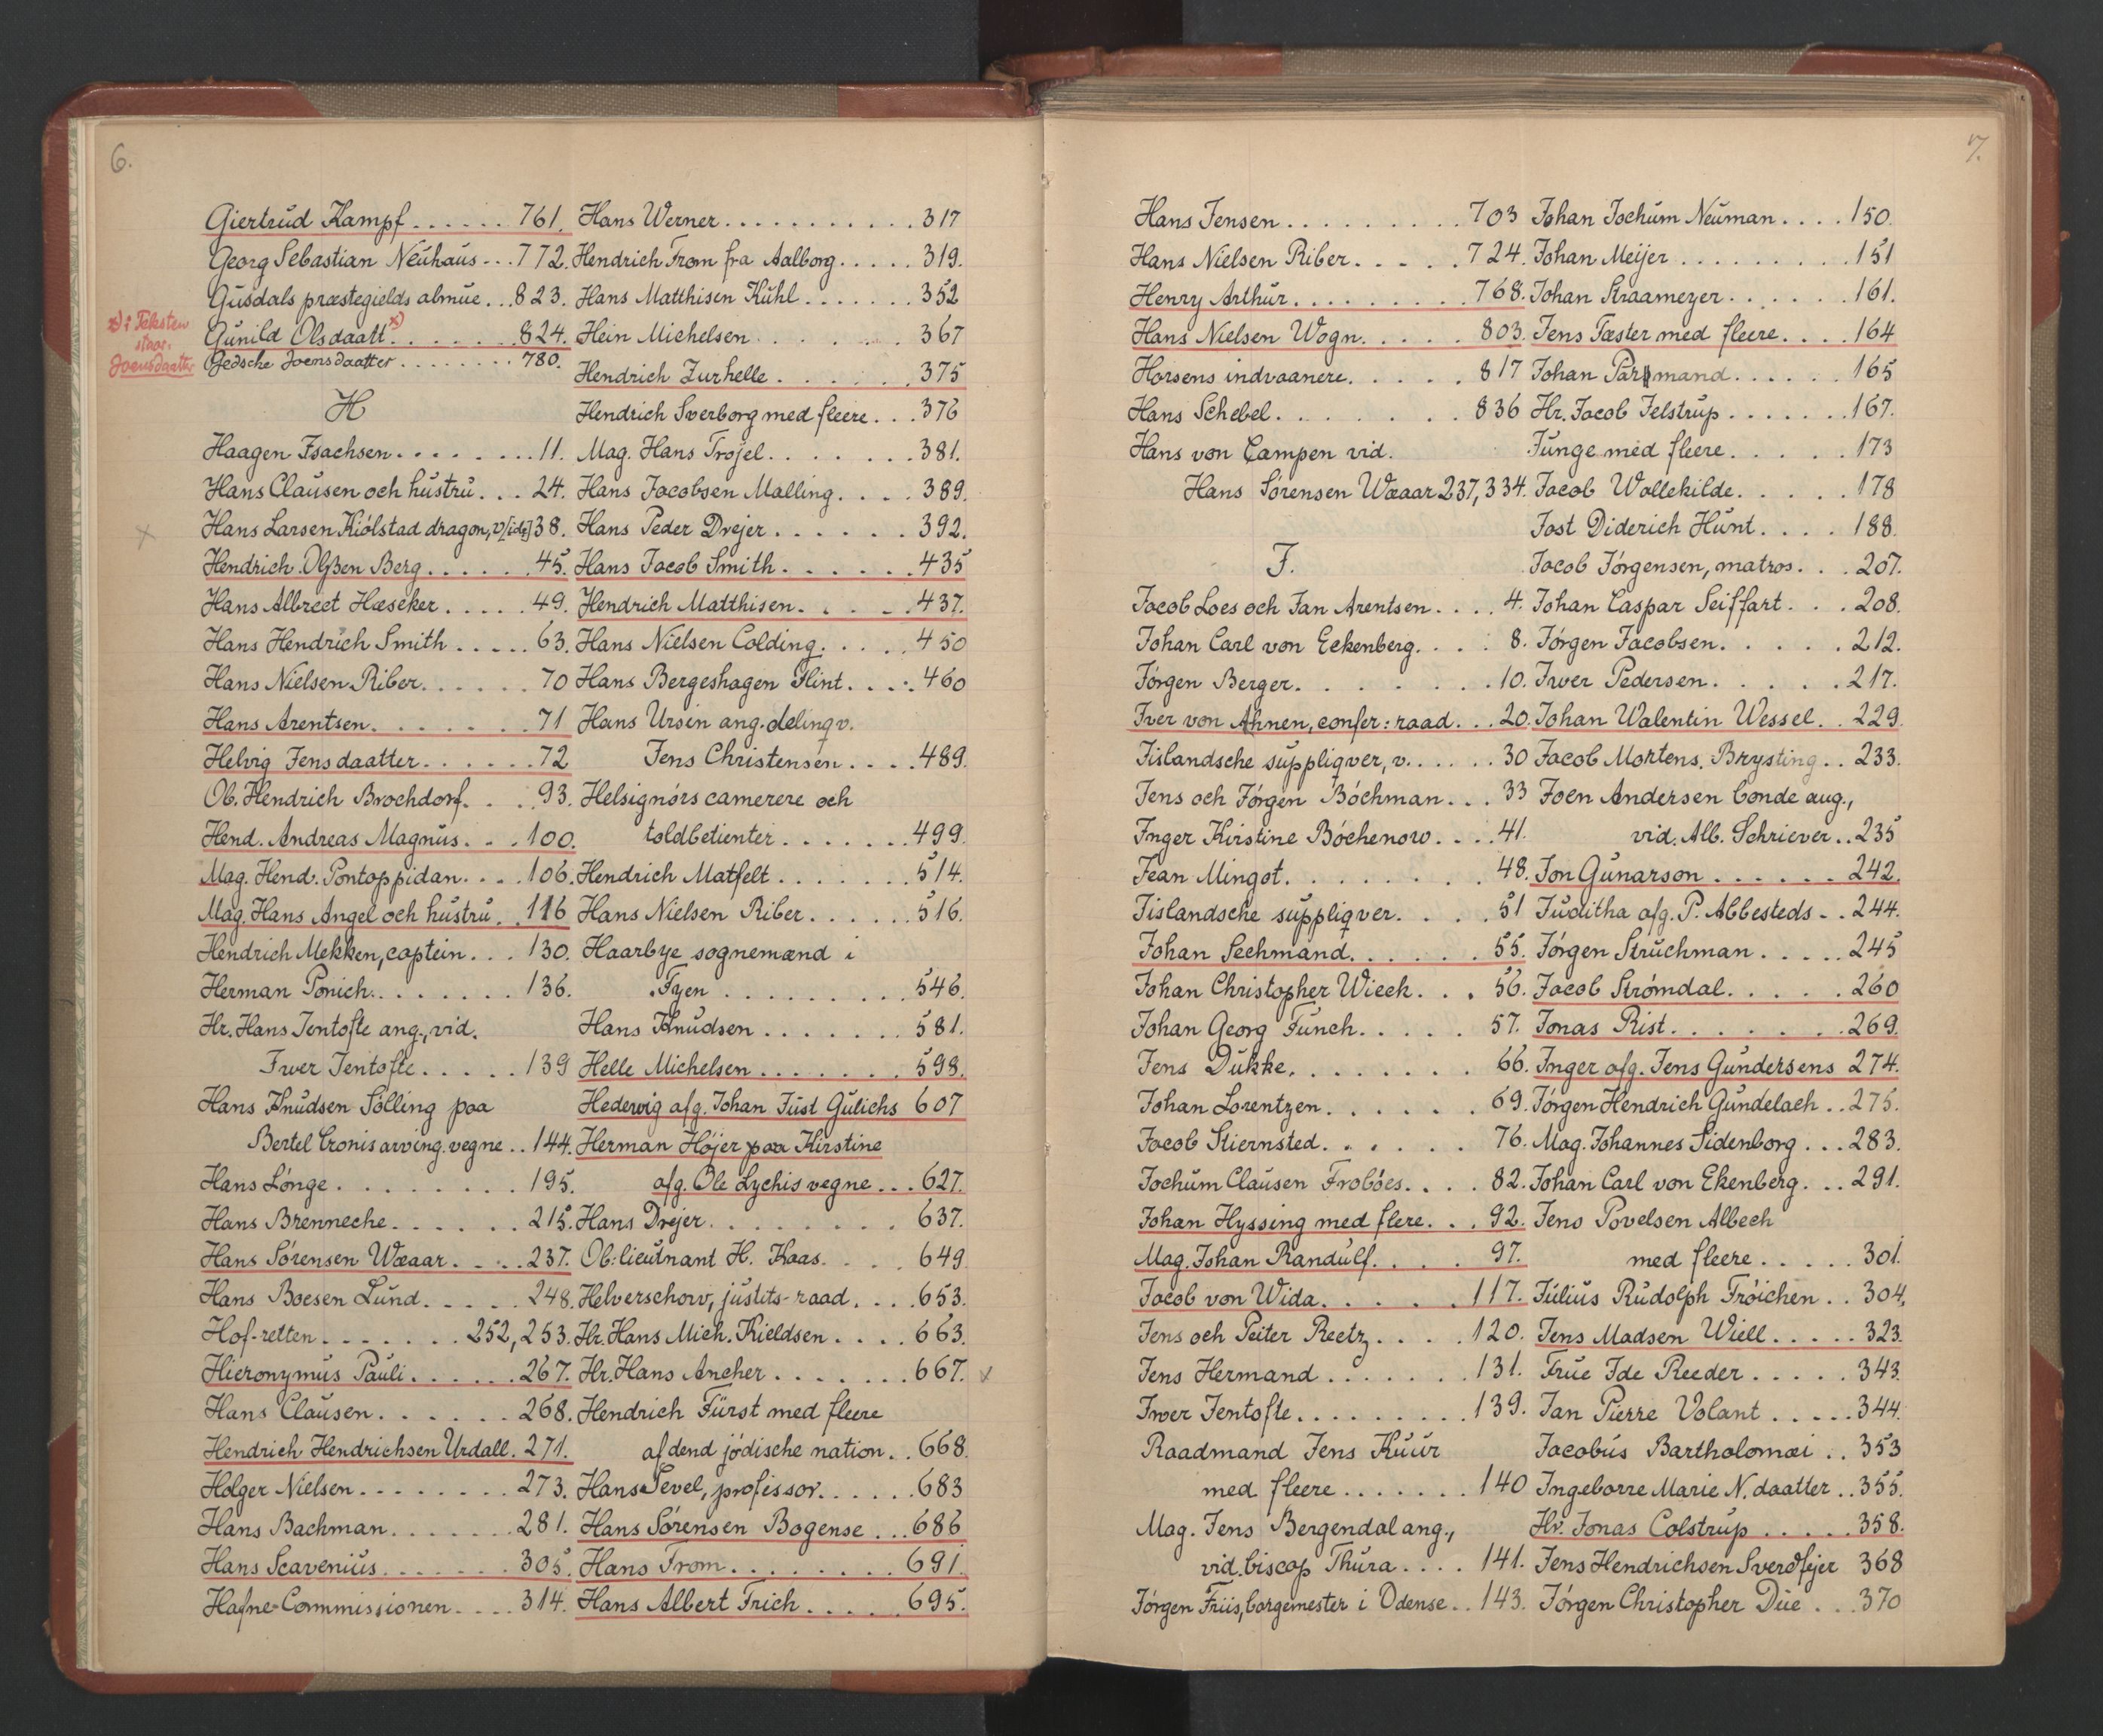 6.
Giertrud Kampf . . . . . . 761.
Georg Sebastian Neuhaus . . . 772.
Gusdals præstegields almue . . . 823.
Gunild Olsdaatt x) . . . . . . . 824.
x) i Teksten
staar:
Joensdaatter
Gedsche Joensdaatter . . . . . . . . 780.
H
Haagen Isachsen . . . . . . . . 11.
Hans Clausen och hustru . . . 24.
Hans Larsen Kiölstad dragon, v[ide] 38.
Hendrich Olßen Berg . . . . . . 45.
Hans Albrect Hæseker . . . . . 49.
Hans Hendrich Smith . . . . . 63.
Hans Nielsen Riber . . . . . . 70
Hans Arentsen . . . . . . . . 71
Helvig Jensdaatter . . . . . . . 72
Ob. Hendrich Brochdorf . . . 93.
Hend. Andreas Magnus . . . 100.
Mag. Hend. Pontoppidan . . . . 106.
Mag. Hans Angel och hustru . 116
Hendrich Mekken, captein . . . 130.
Herman Ponich . . . . . . . . 136.
Hr. Hans Jentofte ang., vid.
Iwer Jentofte . . . . . 139
Hans Knudsen Sölling paa
Bertel Cronis arving. vegne . . 144.
Hans Lönge . . . . . . . . . 195.
Hans Brenneche . . . . . . 215.
Hans Sörensen Wæaar . . . . 237.
Hans Boesen Lund . . . . . 248.
Hof-retten . . . . . . . 252, 253.
Hieronymus Pauli . . . . . . 267.
Hans Clausen . . . . . . . 268.
Hendrich Hendrichsen Urdall . 271.
Holger Nielsen . . . . . . . . 273.
Hans Bachman . . . . . . . 281.
Hans Scavenius . . . . . . . 305.
Hafne-Commissionen . . . . 314.
Hans Werner . . . . . . . . . . . 317
Hendrich From fra Aalborg . . . . . 319.
Hans Matthisen Kuhl . . . . . . . 352
Hein Michelsen . . . . . . . . 367
Hendrich Zurhelle . . . . . . . 375
Hendrich Sverborg med fleere . . . 376
Mag. Hans Trojel . . . . . . . . 381.
Hans Jacobsen Malling . . . . 389.
Hans Peder Drejer . . . . . . . 392.
Hans Jacob Smith . . . . . . . 435
Hendrich Matthisen . . . . . 437.
Hans Nielsen Colding . . . . . 450
Hans Bergeshagen Flint . . . . 460
Hans Ursin ang. delinqv.
Jens Christensen . . . . 489.
Helsignörs camerere och
toldbetienter . . . . . . . 499.
Hendrich Matfelt . . . . . . . 514.
Hans Nielsen Riber . . . . . . 516.
Haarbye sognemænd i
Fyen . . . . . . . . . . 546.
Hans Knudsen . . . . . . . . 581.
Helle Michelsen . . . . . . . . 598.
Hedewig afg. Johan Just Gulichs 607
Herman Höjer paa Kirstine
afg. Ole Lychis vegne . . . 627.
Hans Drejer . . . . . . . . . 637.
Ob: lieutnant H. Kaas . . . . 649.
Helverschow, justits-raad . . . . 653.
Hr. Hans Mich. Kieldsen . . . . 663.
Hr. Hans Ancher . . . . . . . 667. x
Hendrich Fürst med fleere
af dend jödische nation . . 668.
Hans Sevel, professor . . . . . . 683
Hans Sörensen Bogense . . . 686
Hans From . . . . . . . . . 691.
Hans Albert Frich . . . . . 695.
7.
Hans Jensen . . . . . . . . . 703
Hans Nielsen Riber . . . . . 724.
Henry Arthur . . . . . . . . . 768.
Hans Nielsen Wogn . . . . . 803.
Horsens indvaanere . . . . . . 817
Hans Schebel . . . . . . . . 836
Hans von Campen vid.
Hans Sörensen Wæaar 237, 334.
J.
Jacob Loes och Jan Arentsen . . . . 4.
Johan Carl von Eckenberg . . . . 8.
Jörgen Berger . . . . . . . . . 10.
Iver von Ahnen, confer: raad . . . 20.
Iislandsche suppliqver, v. . . . . . 30
Jens och Jörgen Böchman . . . 33
Inger Kirstine Böchenow . . . . 41.
Jean Mingot . . . . . . . . . 48.
Iislandsche suppliqver . . . . 51
Johan Seehmand . . . . . . . 55.
Johan Christopher Wieck . . . 56.
Johan Georg Funch . . . . . 57.
Jens Dukke . . . . . . . . 66.
Johan Lorentzen . . . . . . . 69.
Jacob Stiernsted . . . . . . 76.
Jochum Clausen Froböes . . . . 82.
Johan Hyssing med flere . . . 92.
Mag. Johan Randulf . . . . 97.
Jacob von Wida . . . . . . 117.
Jens och Peiter Reetz . . . . 120.
Jens Hermand . . . . . . . 131.
Iwer Jentofte . . . . . . . . . 139.
Raadmand Jens Kuur
med fleere . . . . . . . 140
Mag. Jens Bergendal ang.,
vid. biscop Thura . . . . 141.
Jörgen Friis, borgemester i Odense . . 143.
Johan Jochum Neuman . . . . 150.
Johan Meijer . . . . . . . . . 151
Johan Straamezer . . . . . . 161.
Jens Fæster med fleere . . . . 164
Johan Parmand . . . . . . 165
Hr. Jacob Jelstrup . . . . . . . 167.
Junge med fleere . . . . . 173
Jacob Wollekilde . . . . . . 178
Jost Diderich Hunt . . . . 188.
Jacob Jörgensen, matros . . . 207.
Johan Caspar Seiffart . . . 208.
Jörgen Jacobsen . . . . . . 212.
Iwer Pedersen . . . . . . 217.
Johan Walentin Wessel . . 229.
Jacob Mortens. Brysting . . 233.
Joen Andersen bonde ang.,
vid. Alb. Schriever . . 235
Jon Gunarson . . . . . . 242.
Juditha afg. P. Abbesteds . . 244.
Jörgen Struchman . . . . . 245
Jacob Strömdal . . . . . 260
Jonas Rist . . . . . . . . 269.
Inger afg. Jens Gundersens 274.
Jörgen Hendrich Gundelach . . 275.
Mag. Johannes Sidenborg . . . 283.
Johan Carl von Ekenberg . . . 291.
Jens Povelsen Albech
med fleere . . . . . 301.
Julius Rudolph Fröichen . . 304.
Jens Madsen Wiell . . . . . 323.
Frue Ide Reeder . . . . . 343.
Jan Pierre Volant . . . . . 344.
Jacobus Bartholomæi . . 353
Ingeborre Marie N. daatter . . 355.
Hr. Jonas Colstrup . . . . . 358.
Jens Hendrichsen Sverdfejer 368
Jörgen Christopher Due . . . 370